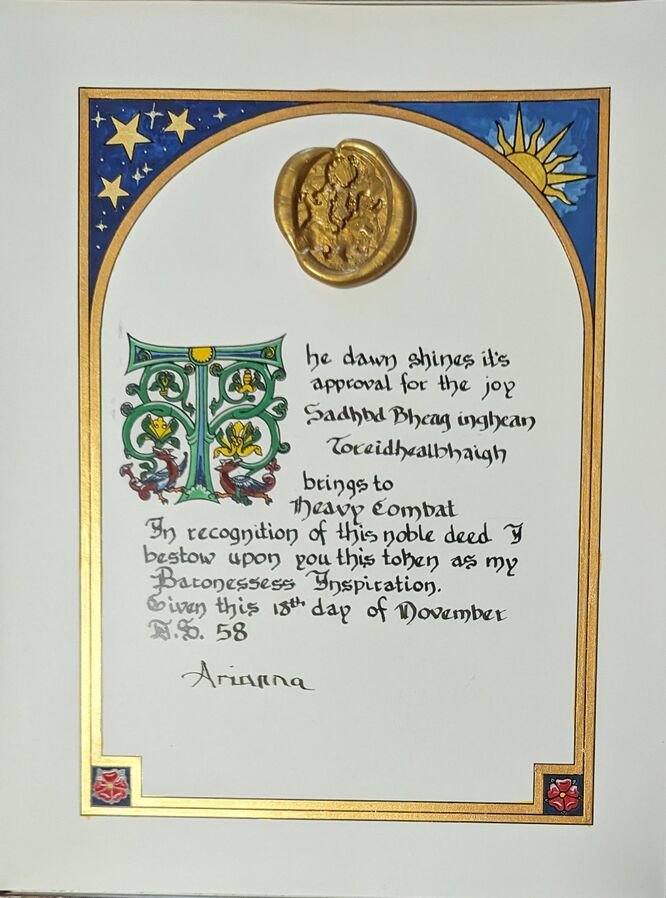 The dawn shines it's
approval for the joy
Sadhbd Bheag inghean
Toreidhealbhaigh
brings to
Heavy Combat
In recognition of this noble deed I
bestow upon you this token as my
Baronessess Inspiration.
Given this 18th day of November
A.S. 58
Arianna